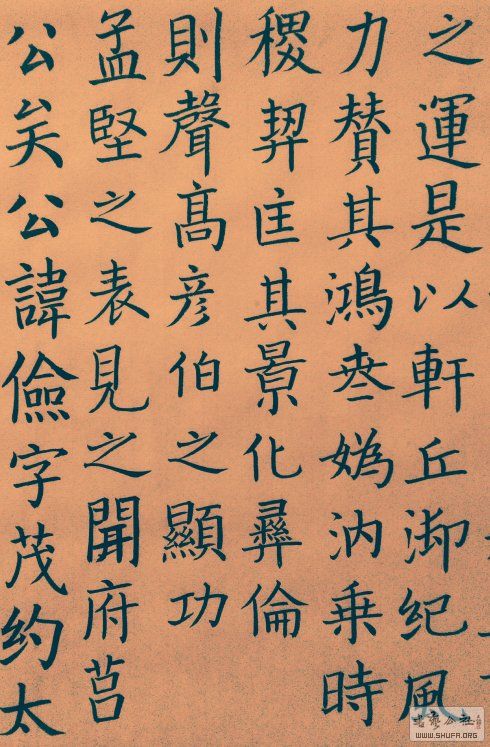 之運是以軒丘御紀風
力賛其鴻媯汭乗時
稷契匡其景化彝倫
則聲髙彦伯之顯功
孟堅之表見之開府莒
公矣公諱儉字茂约太
WWW.SHUFA.ORG